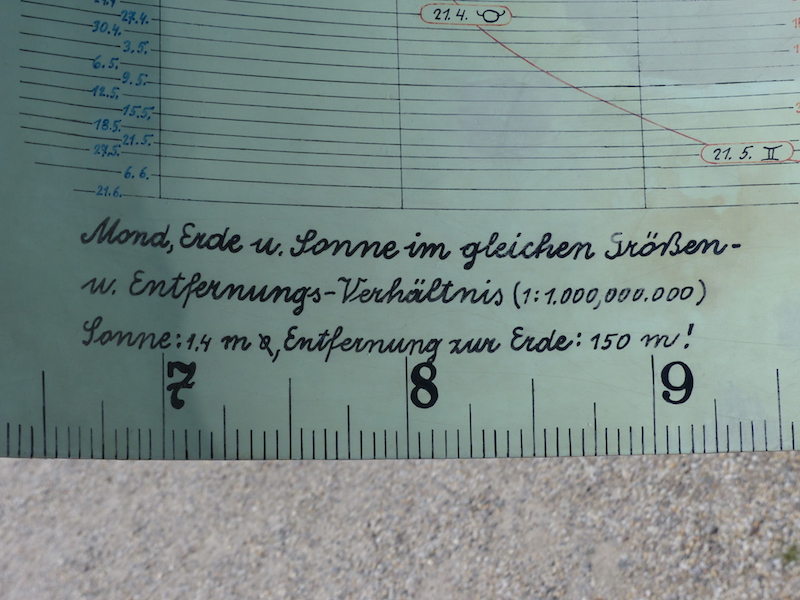 27.4.
30.4.
3.5.
6.5.
9.5.
12.5.
15.5.
18.5.
21.5.
6.6.
21.6.
21.4. ♉
21.5. ♊
Mond, Erde u. Sonne im gleichen Größen-
u. Entfernungs-Verhältnis (1:1.000,000.000)
Sonne: 1.4 m ⌀, Entfernung zur Erde: 150 m!
7 8 9